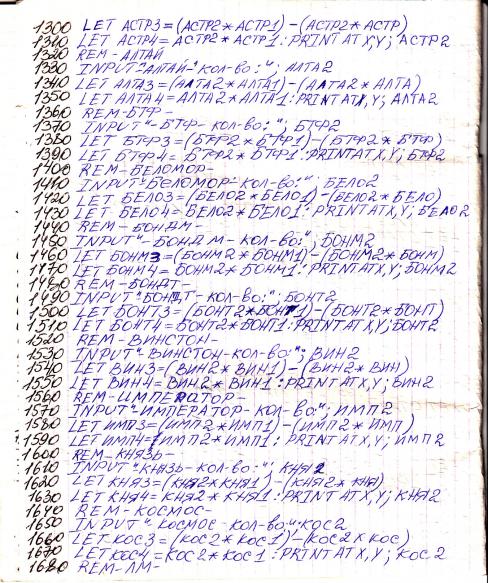 1300 LET АСТР3=(АСТР2*АСТР1)-(АСТР2*АСТР)
1310 LET АСТР4=АСТР2*АСТР1:PRINT AT X,Y; АСТР2
1320 REM-АЛТАЙ
1330 INPUT"-АЛТАЙ-КОЛ-ВО:"; АЛТА2
1340 LET АЛТА3=(АЛТА2*АЛТА1)-(АЛТА2*АЛТА)
1350 LET АЛТА4=АЛТА2*АЛТА1:PRINT AT X,Y; АЛТА2
1360 REM-БТФ-
1370 INPUT"-БТФ-КОЛ-ВО:"; БТФ2
1380 LET БТФ3=(БТФ2*БТФ1)-(БТФ2*БТФ)
1390 LET БТФ4=БТФ2*БТФ1:PRINT AT X,Y; БТФ2
1400 REM-БЕЛОМОР-
1410 INPUT"БЕЛОМОР-КОЛ-ВО:"; БЕЛО2
1420 LET БЕЛО3=(БЕЛО2*БЕЛО1)-(БЕЛО2*БЕЛО)
1430 LET БЕЛО4=БЕЛО2*БЕЛО1:PRINT AT X,Y; БЕЛО2
1440 REM-БОНДМ-
1450 INPUT"-БОНДМ-КОЛ-ВО:"; БОНМ2
1460 LET БОНМ3=(БОНМ2*БОНМ1)-(БОНМ2*БОНМ)
1470 LET БОНМ4=БОНМ2*БОНМ1:PRINT AT X,Y; БОНМ2
1480 REM-БОНДТ-
1490 INPUT"БОНДТ-КОЛ-ВО:"; БОНТ2
1500 LET БОНТ3=(БОНТ2*БОНТ1)-(БОНТ2*БОНТ)
1510 LET БОНТ4=БОНТ2*БОНТ1:PRINT AT X,Y; БОНТ2
1520 REM-ВИНСТОН-
1530 INPUT"ВИНСТОН-КОЛ-ВО:"; ВИН2
1540 LET ВИН3=(ВИН2*ВИН1)-(ВИН2*ВИН)
1550 LET ВИН4=ВИН2*ВИН1:PRINT AT X,Y; ВИН2
1560 REM-ИМПЕРАТОР-
1570 INPUT"-ИМПЕРАТОР-КОЛ-ВО:"; ИМП2
1580 LET ИМП3=(ИМП2*ИМП1)-(ИМП2*ИМП)
1590 LET ИМП4=ИМП2*ИМП1:PRINT AT X,Y; ИМП2
1600 REM-КНЯЗЬ-
1610 INPUT"КНЯЗЬ-КОЛ-ВО:"; КНЯ2
1620 LET КНЯ3=(КНЯ2*КНЯ1)-(КНЯ2*КНЯ)
1630 LET КНЯ4=КНЯ2*КНЯ1:PRINT AT X,Y; КНЯ2
1640 REM-КОСМОС-
1650 INPUT"-КОСМОС-КОЛ-ВО:";КОС2
1660 LET КОС3=(КОС2*КОС1)-(КОС2*КОС)
1670 LET КОС4=КОС2*КОС1:PRINT AT X,Y; КОС2
1680 REM-ЛМ-